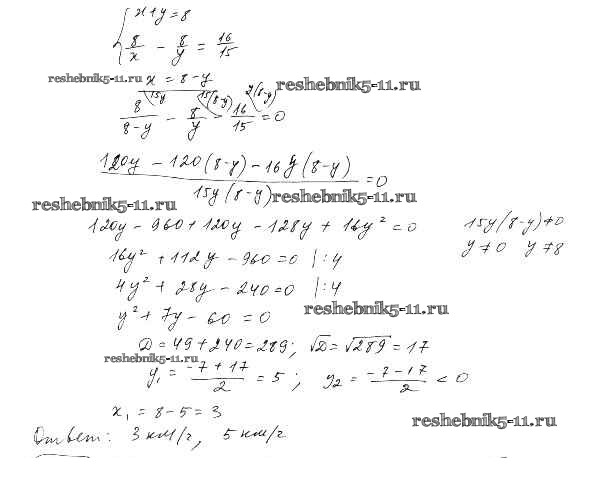 x + y = 8
8/x - 8/y = 16/15
reshebnik5-11.ru x = 8 - y
reshebnik5-11.ru
15y 15(8-y) y(8-y)
8/(8-y) - 8/y - 16/15 = 0
(120y - 120(8-y) - 16y(8-y))/(15y(8-y)) = 0
reshebnik5-11.ru reshebnik5-11.ru
120y - 960 + 120y - 128y + 16y² = 0 15y(8-y) ≠ 0
16y² + 112y - 960 = 0 | :4 y ≠ 0 y ≠ 8
4y² + 28y - 240 = 0 | :4
reshebnik5-11.ru
y² + 7y - 60 = 0
D = 49 + 240 = 289; √D = √289 = 17
reshebnik5-11.ru
y₁ = (-7 + 17)/2 = 5; y₂ = (-7 - 17)/2 < 0
x₁ = 8 - 5 = 3
reshebnik5-11.ru
Ответ: 3 км/г, 5 км/г